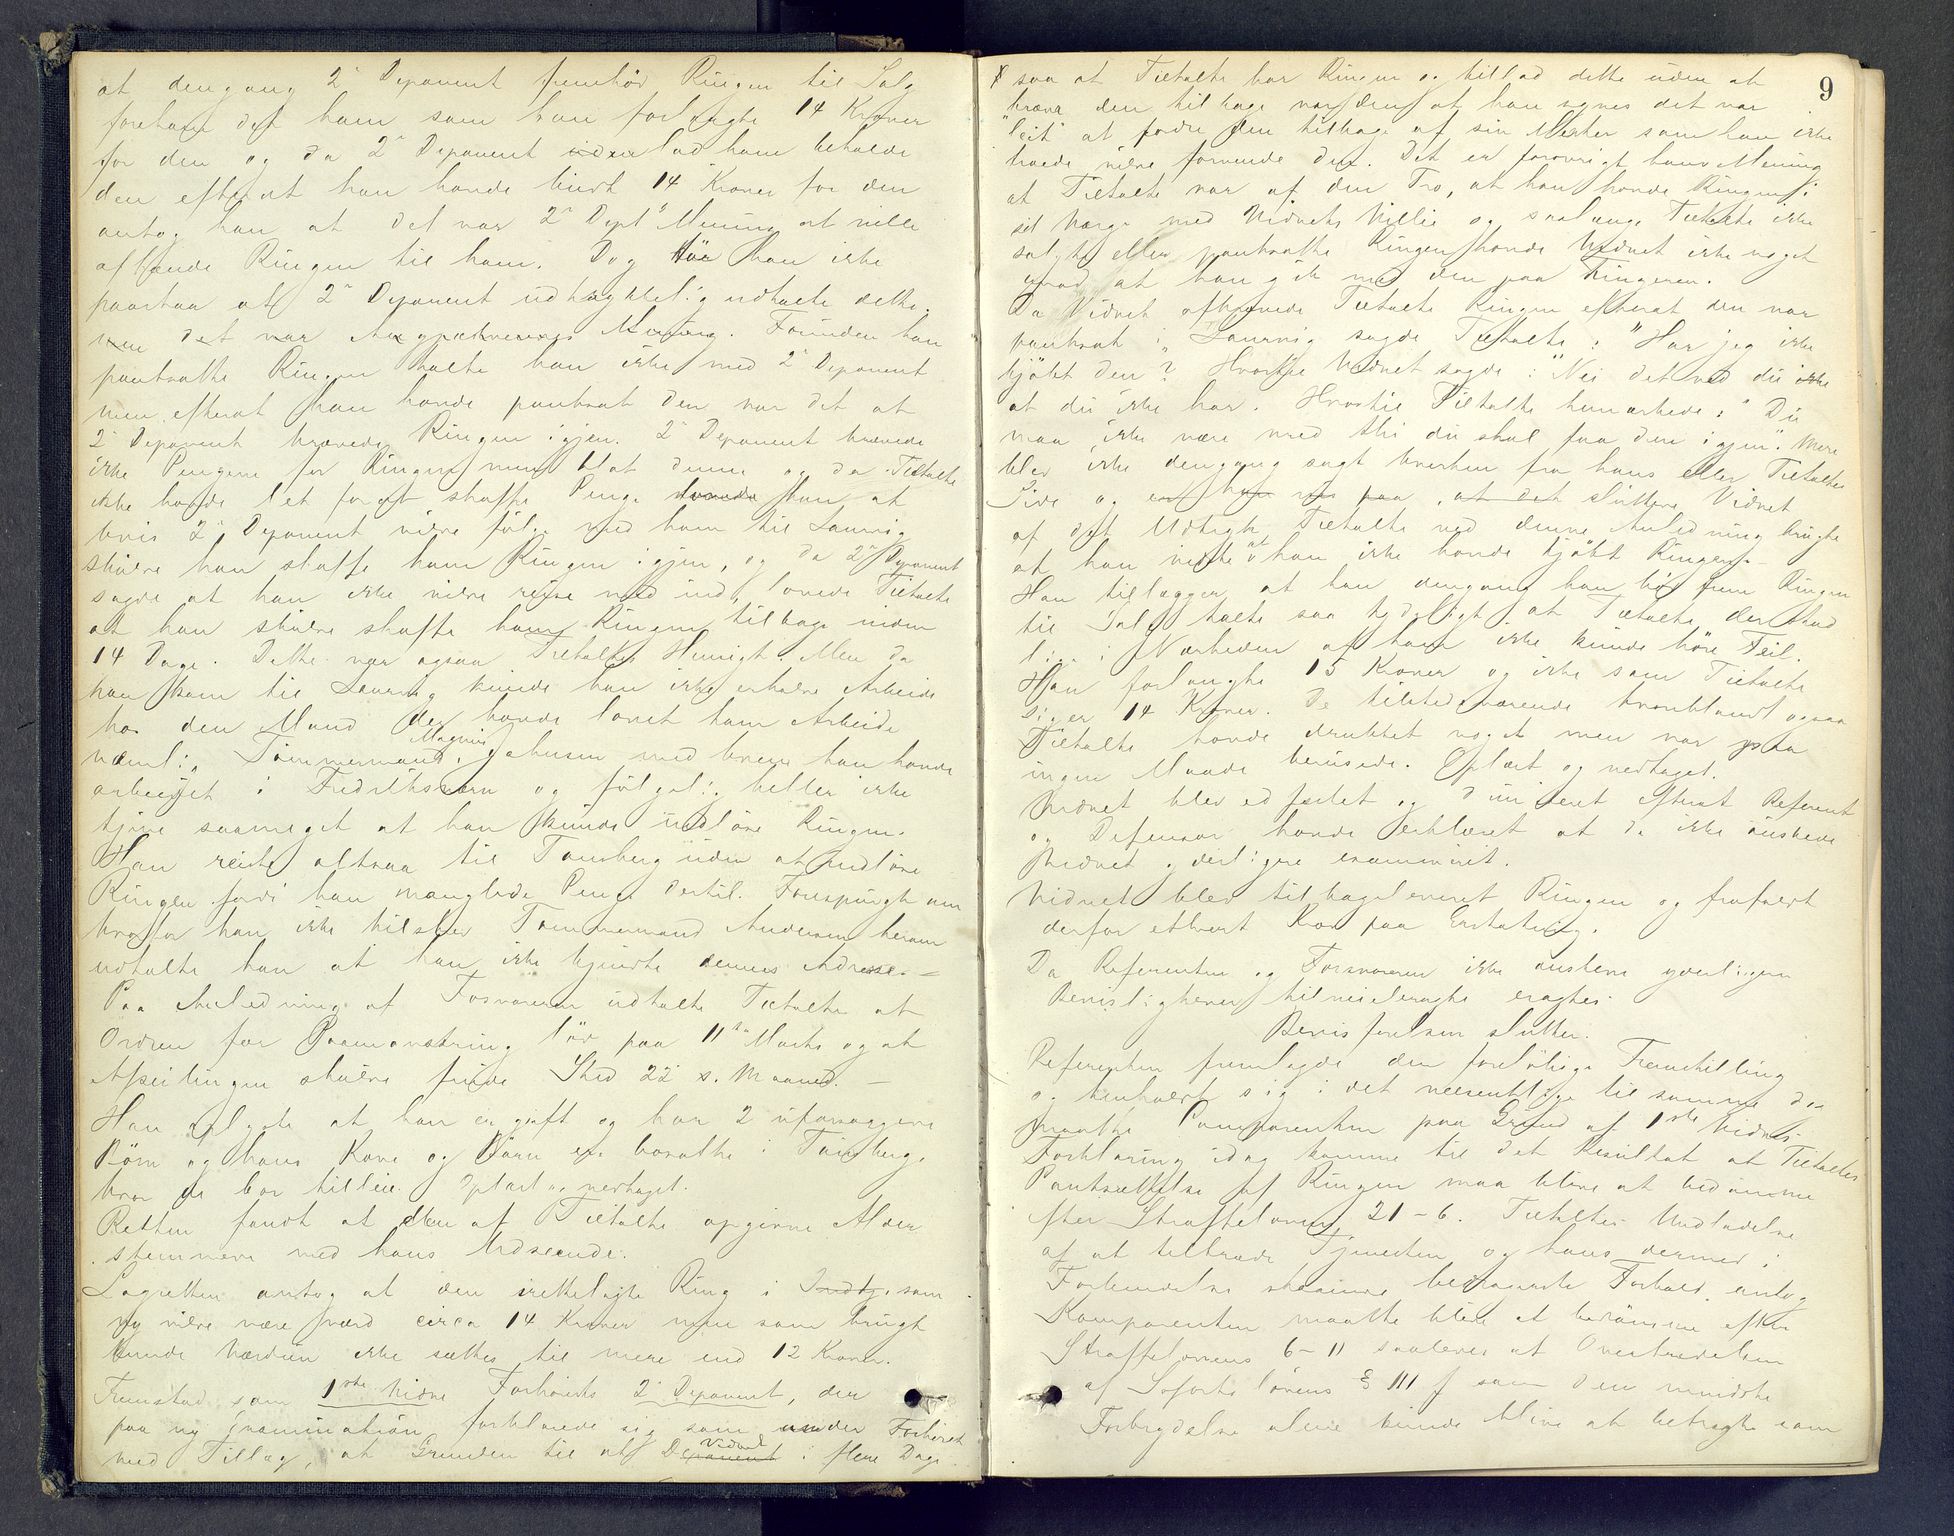 at dengang 2' Deponent frembød Ringen til Salg
forekom det ham som han forlangte 14 Kroner
for den og da 2' Deponent lod ham beholde
den efterat han havde budt 14 Kroner for den
antog han at det var 2' Dept's Mening at ville
afhænde Ringen til ham. Dog tør han ikke
paastaa at 2' Deponent udtrykkelig udtalte dette.
det var Mening. Forinden han
pantsatte Ringen talte han ikke med 2' Deponent
men efterat han havde pantsat den var det at
2' Deponent krævede Ringen igjen. 2' Deponent krævede
ikke Pengene for Ringen men blot denne og da Tiltalte
ikke havde let for at skaffe Penge lovede han at
hvis 2' Deponent vilde følge med ham til Laurvig
skulde han skaffe ham Ringen igjen, og da 2' Deponent
sagde at han ikke vilde reise med ind, lovede Tiltalte
at han skulde skaffe ham Ringen tilbage inden
14 Dage. Dette var ogsaa Tiltaltes Hensigt. Men da
han kom til Laurvig kunde han ikke erholde Arbeide
hos den Mand der havde lovet ham Arbeide
nemlig Tømmermand Magnus Johnsen med hvem han havde
arbeidet i Fredriksværn og følgelig heller ikke
tjene saameget at han kunde indløse Ringen.
Han reiste altsaa til Tønsberg uden at indløse
Ringen fordi han manglede Penge dertil. Forespurgt om
hvorfor han ikke tilskrev Tømmermand Andersen herom
udtalte han at han ikke kjendte dennes Adresse. –
Paa Anledning af Forsvareren udtalte Tiltalte at
Ordren for Paamønstring lød paa 11te Marts og at
Afseilingen skulde finde Sted 22 s. Maaned. –
Han oplyste at han er gift og har 2 uforsørgede
Børn og hans Kone og Børn ere bosatte i Tønsberg
hvor de bor tilleie. Oplæst og vedtaget.
Retten fandt at den af Tiltalte opgivne Alder
stemmer med hans Udseende.
Lagretten antog at den irettelagte Ring i som
ny vilde være værd circa 14 Kroner men som brugt
kunde Værdien ikke sættes til mere end 12 Kroner.
Fremstod som 1ste Vidne Forhørets 2' Deponent, der
paa ny Examination forklarede sig som under Forhøret
med Tillæg, at Grunden til at Deponent Vidnet i flere Dage
9
saa at Tiltalte bar Ringen og tillod dette uden at
kræve den tilbage var den at han synes det var
"leit" at fordre den tilbage af sin Mester som han ikke
havde villet forvende den. Det er forøvrigt hans Mening
at Tiltalte var af den Tro, at han havde Ringen i
sit Værge med Vidnets Villie og saalænge Tiltalte ikke
solgte eller pantsatte Ringen havde Vidnet ikke noget
imod at han gik med den paa Fingeren.
Da Vidnet afkrævede Tiltalte Ringen efterat den var
pantsat i Laurvig sagde Tiltalte: "Har jeg ikke
kjøbt den? Hvortil Vidnet sagde: "Nei det ved du ikke
at du ikke har. Hvortil Tiltalte bemærkede: "Du
maa ikke være med thi du skal faa den igjen". Mere
blev ikke dengang sagt hverken fra hans eller Tiltaltes
Side og slutter Vidnet
af det Udtryk Tiltalte ved denne Anledning brugte
at han vidste at han ikke havde kjøbt Ringen. –
Han tillægger at han dengang han bød frem Ringen
til Salg talte saa tydeligt at Tiltalte der stod
lige i Nærheden af ham ikke kunde høre Feil.
Han forlangte 15 Kroner og ikke som Tiltalte
siger 14 Kroner. De tilstedeværende hvoriblandt ogsaa
Tiltalte havde drukket noget men var paa
ingen Maade berusede. Oplæst og vedtaget.
Vidnet blev edfæstet og dimitteret efterat Referent
og Defensor havde erklæret at de ikke ønskede
Vidnet yderligere examineret.
Vidnet blev tilbageleveret Ringen og frafaldt
derfor ethvert Krav paa Erstatning.
Da Referenten og Forsvareren ikke ønskede yderligere
Bevisligheder tilveiebragte eragtes
Bevisførelsen sluttet.
Referenten fremlagde den foreløbige Fremstilling
og henholdt sig i det væsentlige til samme da
maatte Comparenten paa Grund af 1ste Vidnes
Forklaring idag komme til det Resultat at Tiltaltes
Pantsættelse af Ringen maa blive at bedømme
efter Straffeloven 21–6. Tiltaltes Undladelse
af at tiltræde Tjenesten og hans dermed i
Forbindelse staaende Forhold, antog
Komparenten maatte blive at bedømme efter
Straffelovens 6–11 saaledes at Overtrædelsen
af Sofartslovens § 111 f som den mindste
Forbrydelse alene kunde blive at betragte som